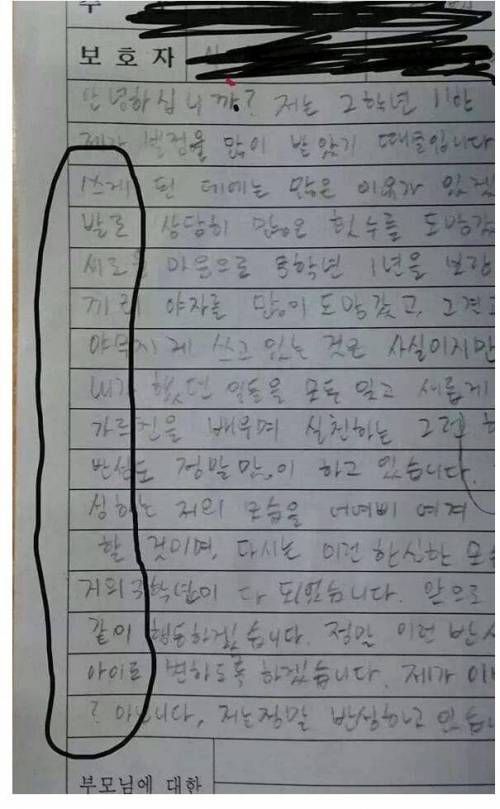 보호자
안녕하십니까? 저는 2학년 11반
제가 벌점을 많이 받았기 때문입니다
쓰게 된 데에는 많은 이유가 있겠
발로 상당히 많은 횟수를 도망갔
새로운 마음으로 3학년 1년을 보람
끼리 야자를 많이 도망갔고, 그건
야무지게 쓰고 있는 것은 사실이지만
내가 했던 일들을 모두 잊고 새롭게
가르친을 배우며 실천하는 그런
반성도 정말 많이 하고 있습니다.
성하는 저의 모습을 어여삐 여겨
할 것이며, 다시는 이런 한심한 모
거의 3학년이 다 되었습니다. 앞으로
같이 행동하겠습니다. 정말 이런 반성
아이로 변하도록 하겠습니다. 제가 이
? 아닙니다, 저는 정말 반성하고 있습
부모님에 대한